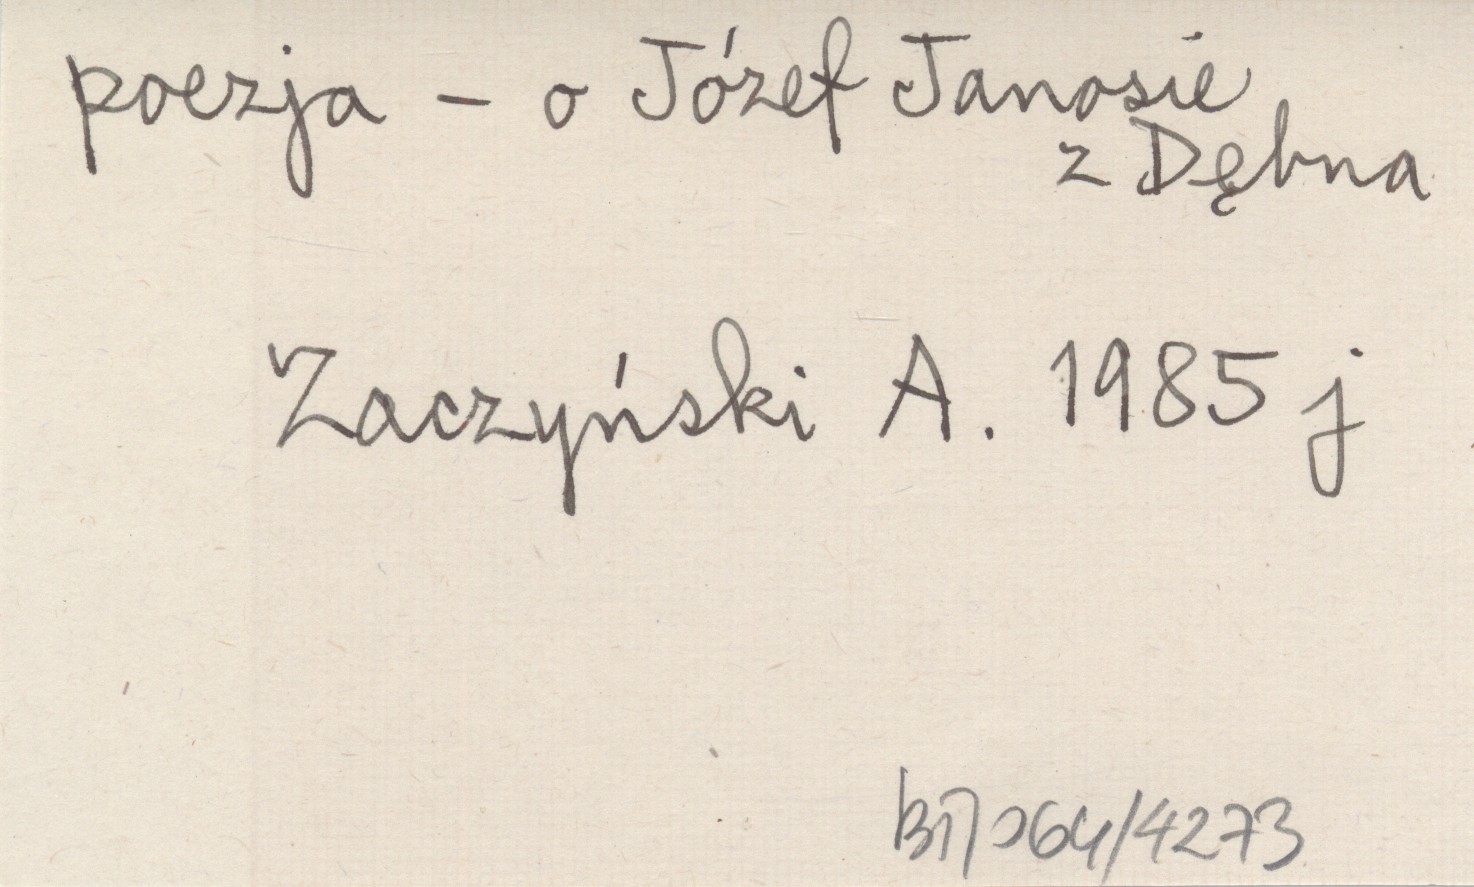 poezja – o Józef Janosie
z Dębna
Zaczyński A. 1985 j
064/4273